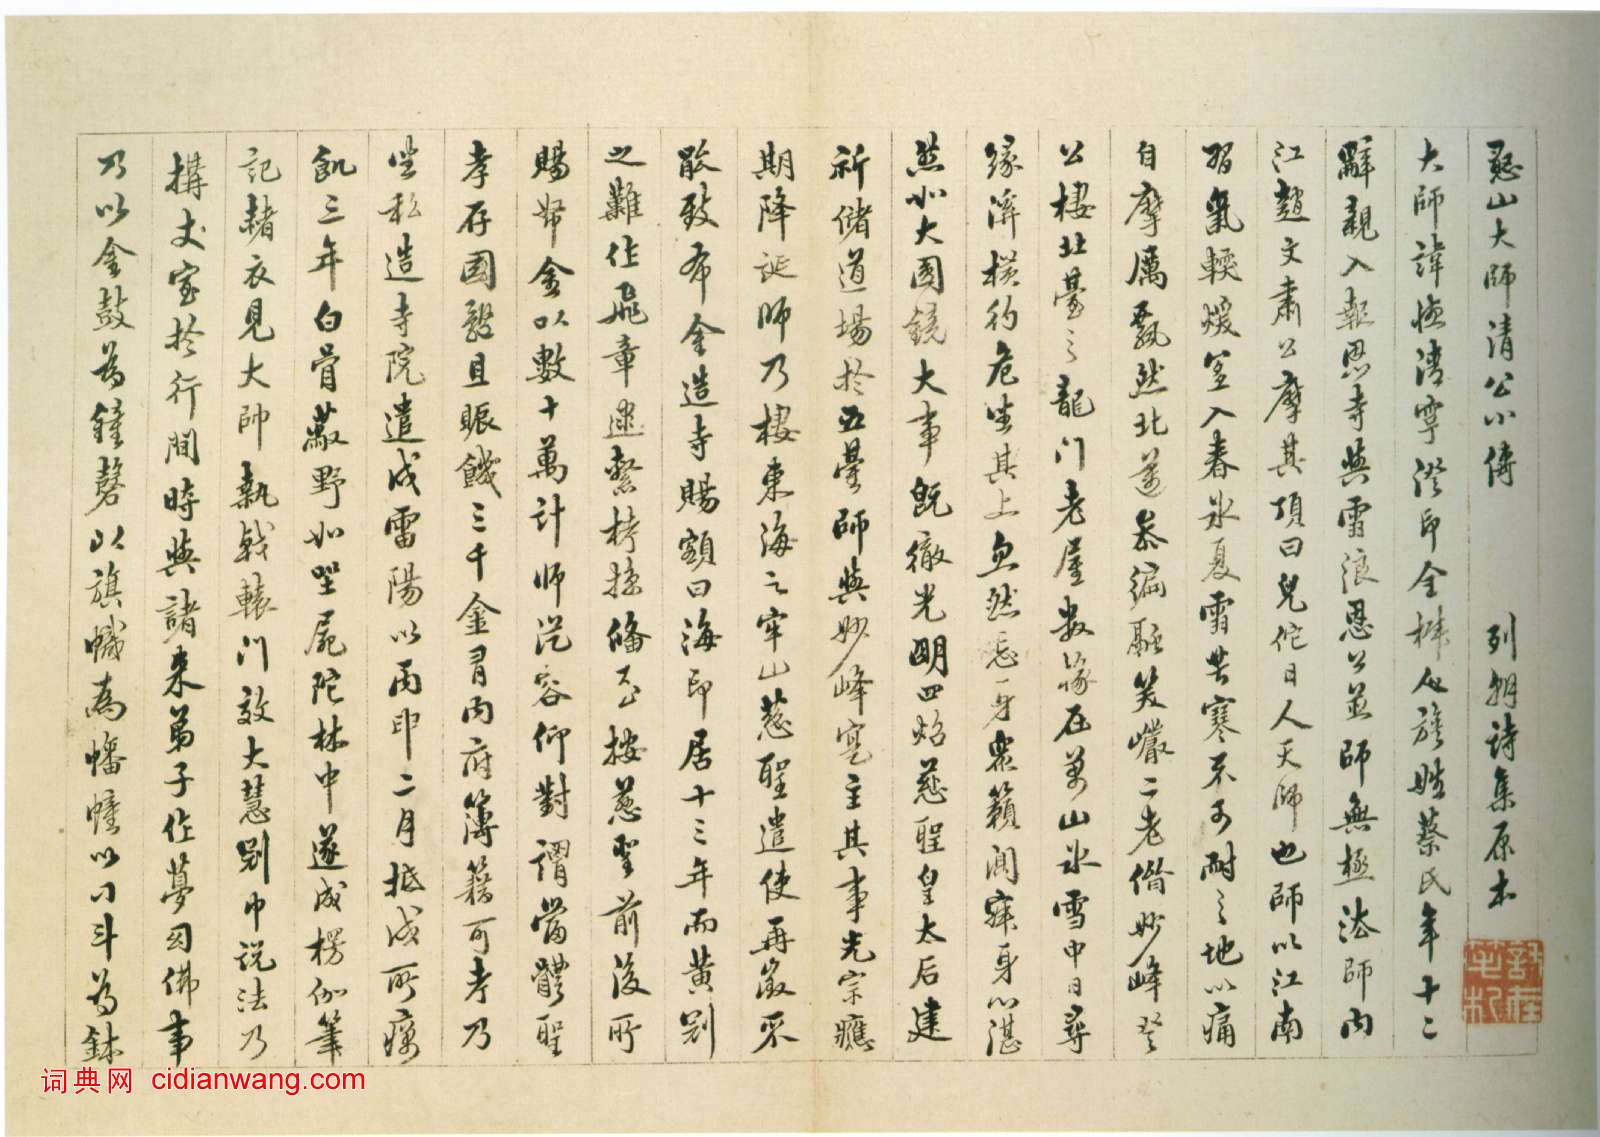 憨山大師清公小傳 列朝詩集原本
大師諱德清字澄印全椒人族姓蔡氏年十二
辭親入報恩寺與雪浪恩公並師無極法師內
江趙文肅公摩其頂曰兒佗日人天師也師以江南
習氣輭煖宜入春氷夏雪苦寒不可耐之地以痛
自摩厲飄然北邁參徧融笑巖二老偕妙峰登
公棲北臺之龍门老屋數椽在萬山氷雪中日尋
緣溪橫彴危坐其上忽然忘身衆籟闃寂身心湛
然如大圓鏡大事既徹光明四炤慈聖皇太后建
祈儲道場於五臺師與妙峰寔主其事光宗應
期降誕師乃棲東海之牢山慈聖遣使再徵不
能致布金造寺賜額曰海印居十三年而黃冠
之難作飛章逮繫拷掠備至按慈聖前後所
賜帑金以數十萬計師從容仰對謂當體聖
孝存國體且賑饑三千金有內府簿籍可考乃
坐私造寺院遣戍雷陽以丙申二月抵戍所癘
飢三年白骨蔽野如坐屍陀林中遂成楞伽筆
記赭衣見大帥執戟轅门效大慧冠巾說法乃
搆丈室於行間時與諸來弟子作夢幻佛事
乃以金鼓為鐘磬以旗幟為幡幢以刁斗為鉢
词典网 cidianwang.com